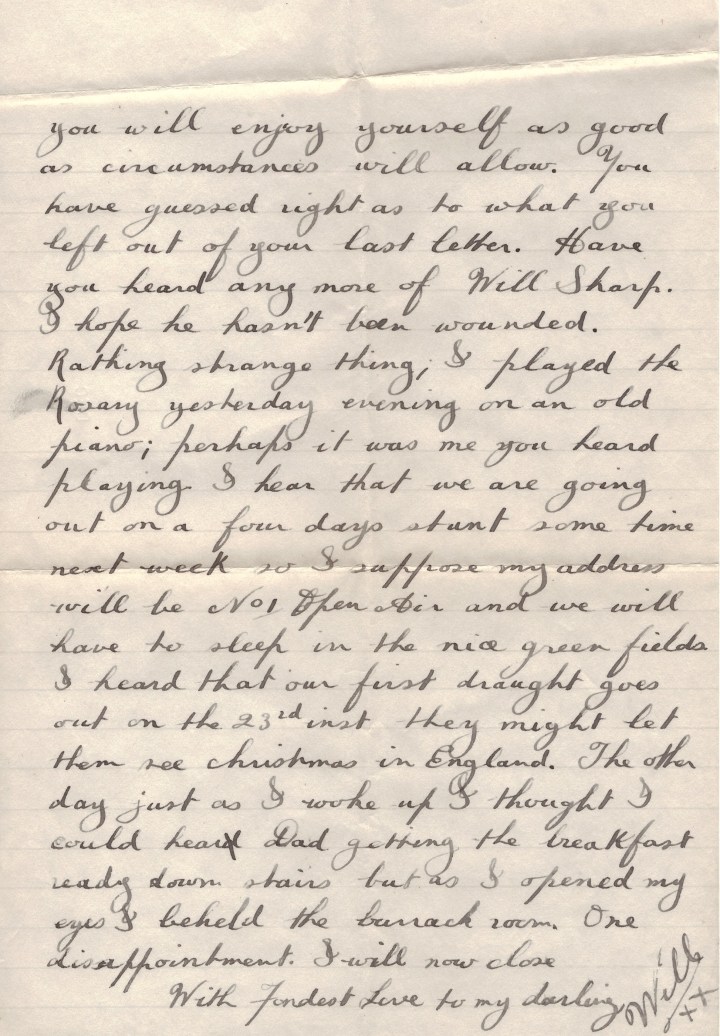 you will enjoy yourself as good
as circumstances will allow. You
have guessed right as to what you
left out of your last letter. Have
you heard any more of Will Sharp.
I hope he hasn't been wounded.
Rathing strange thing; I played the
Rosary yesterday evening on an old
piano; perhaps it was me you heard
playing. I hear that we are going
out on a four days stunt some time
next week so I suppose my address
will be No 1 Open Air and we will
have to sleep in the nice green fields
I heard that our first draught goes
out on the 23rd inst they might let
them see christmas in England. The other
day just as I woke up I thought I
could hear Dad getting the breakfast
ready down stairs but as I opened my
eyes I beheld the barrack room. One
disappointment. I will now close
With Fondest Love to my darling
Will
xxx